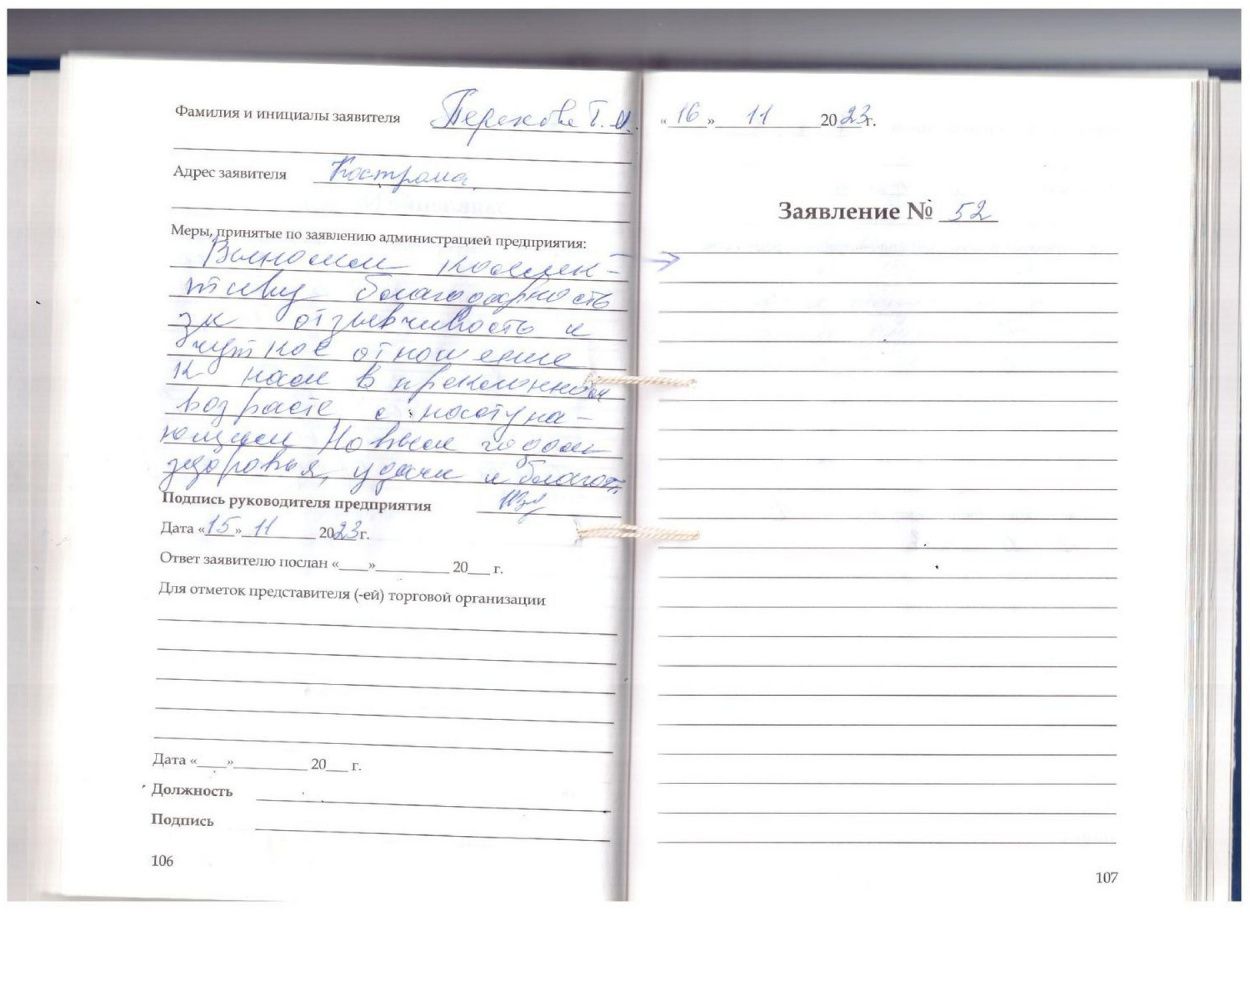 Фамилия и инициалы заявителя Терехова Т. И.
Адрес заявителя Кострома
Меры, принятые по заявлению администрацией предприятия:
Выносим коллек-
тиву благодарность
за отзывчивость и
чуткое отношение
к нам в преклонном
возрасте, с наступа-
ющим Новым годом
здоровья, удачи и благоп.
Подпись руководителя предприятия
Дата «15» 11 2023г.
Ответ заявителю послан «___»__________ 20___ г.
Для отметок представителя (-ей) торговой организации
Дата «___»__________ 20___ г.
Должность
Подпись
106
«16» 11 2023г.
Заявление № 52
107